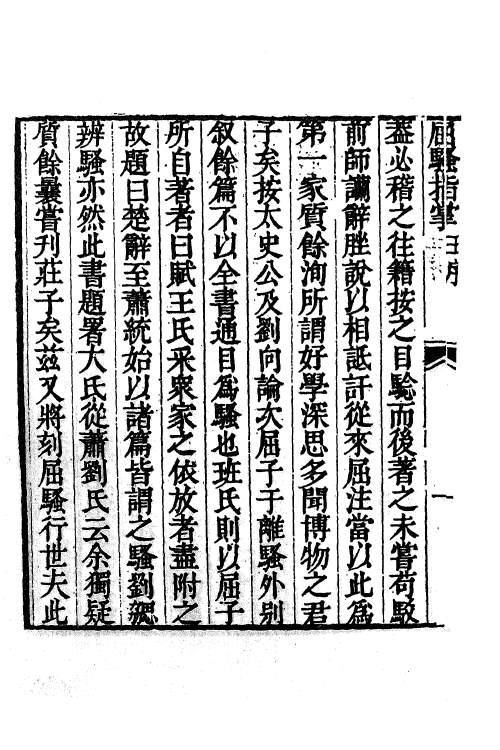 屈騷指掌
蓋必稽之往籍按之目驗而後著之未嘗苟駁
前師讕辭脞說以相詆訐從來屈注當以此爲
第一家質餘洵所謂好學深思多聞博物之君
子矣按太史公及劉向論次屈子于離騷外别
敘餘篇不以全書通目爲騷也班氏則以屈子
所自著者曰賦王氏采衆家之依放者盡附之
故題曰楚辭至蕭統始以諸篇皆謂之騷劉勰
辨騷亦然此書題署大氐從蕭劉氏云余獨疑
質餘曩嘗刊莊子矣茲又將刻屈騷行世夫此